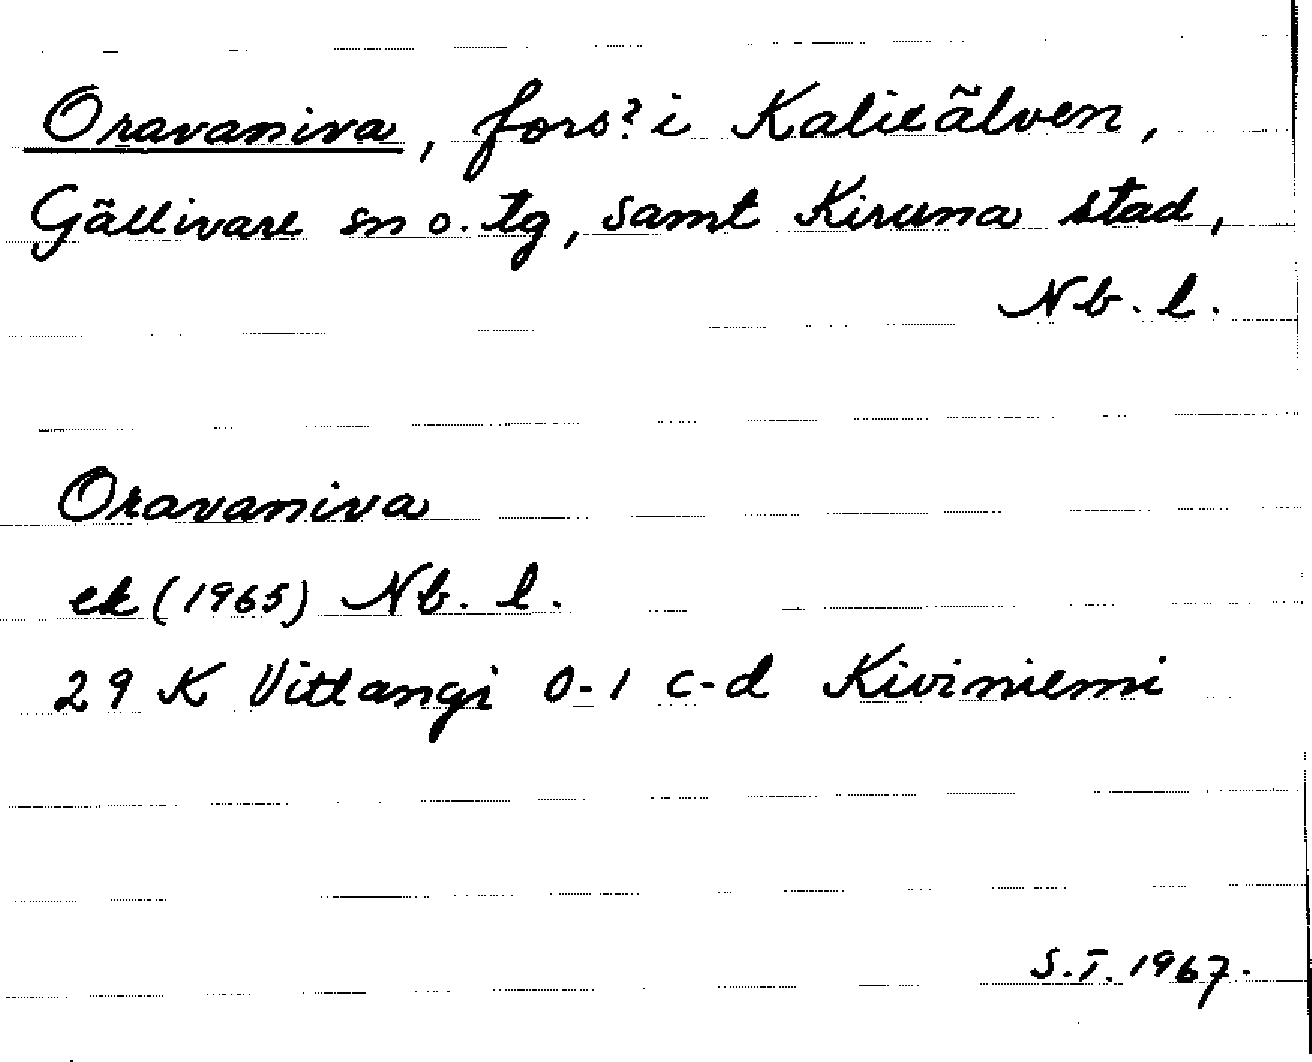 Oravaniva, fors? i Kalixälven,
Gällivare sn o. tg, samt Kiruna stad,
Nb. l.
Oravaniva
ek (1965) Nb. l.
29 K Vittangi 0-1 c-d Kiviniemi
S.I. 1967.